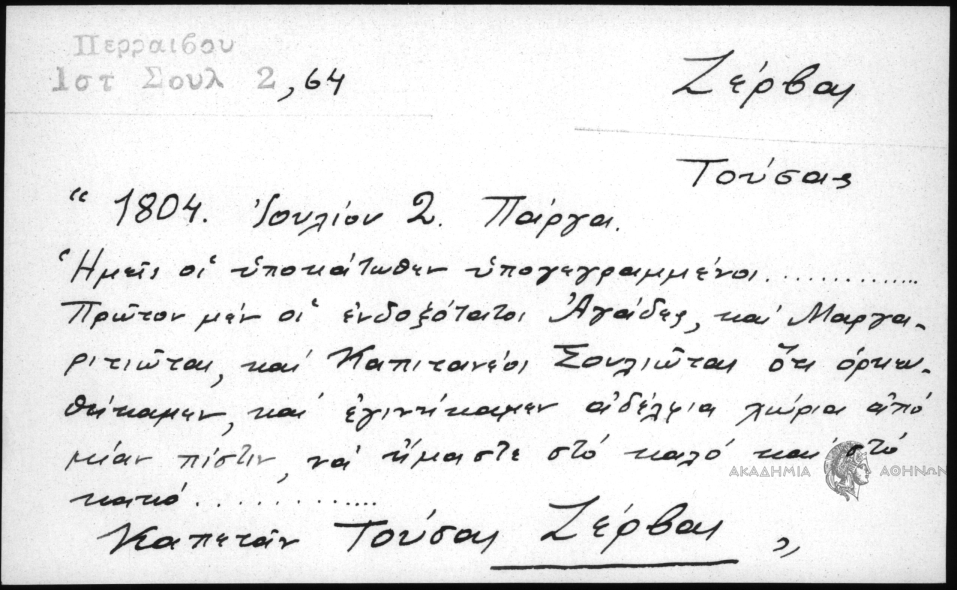 Περραιβου
Ιστ Σουλ 2, 64
Ζέρβας
Τούσας
“ 1804. Ἰουλίου 2. Πάργα.
Ἡμεῖς οἱ ὑποκάτωθεν ὑπογεγραμμένοι..............
Πρῶτον μέν οἱ ἐνδοξότατοι Ἀγάδες, καί Μαργα-
ριτιῶται, καί Καπιτανέοι Σουλιῶται ὅτι ὁρκω-
θήκαμεν, καί ἐγιντίκαμεν ἀδέλφια χώρια ἀπό
μίαν πίστιν, νά ἤμαστε στό καλό καί στό
κακό..............
Καπετάν Τούσας Ζέρβας „
ΑΚΑΔΗΜΙΑ ΑΘΗΝΩΝ